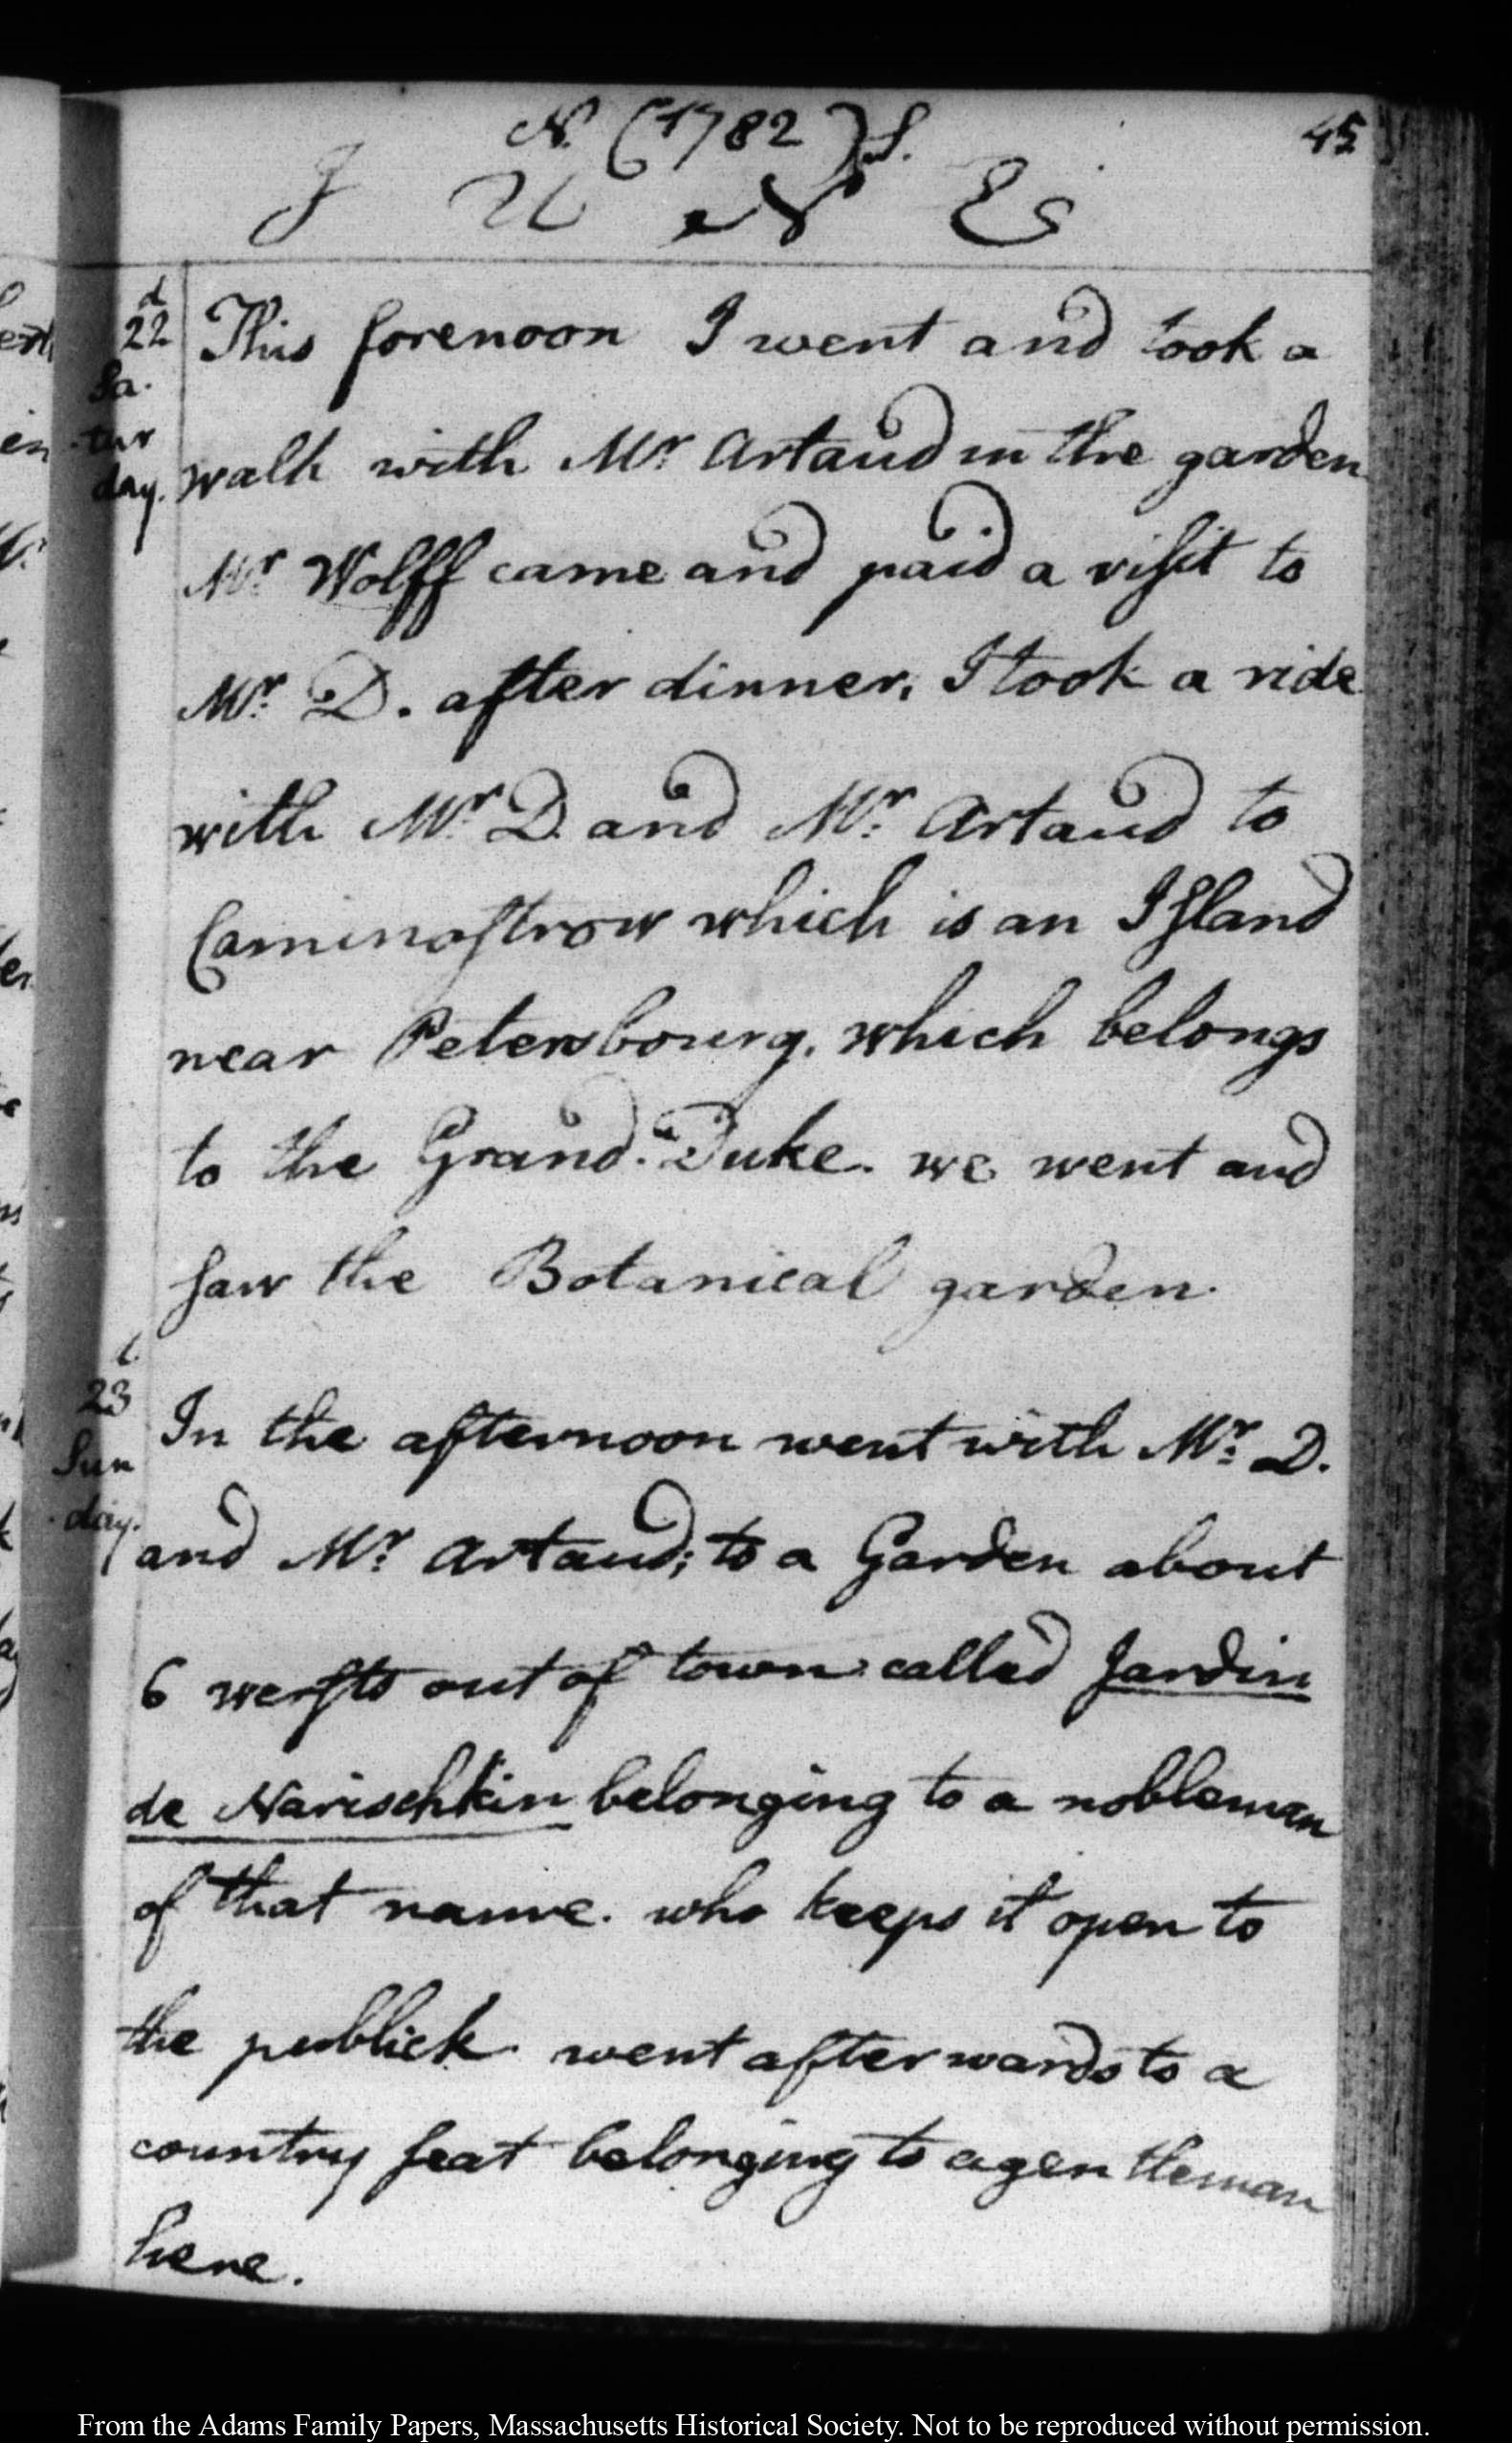 N. (1782) S.
45
J U N E
d
22
Sa.
tur
day.
This forenoon I went and took a
walk with Mr. Artaud in the garden
Mr. Wolff came and paid a visit to
Mr. D. after dinner, I took a ride
with Mr. D. and Mr. Artaud to
Caminostrow which is an Island
near Petersbourg, which belongs
to the Grand-Duke. we went and
saw the Botanical garden.
23
Sun
day.
In the afternoon went with Mr. D.
and Mr. Artaud; to a Garden about
6 wersts out of town called Jardin
de Narischkin belonging to a nobleman
of that name. who keeps it open to
the publick. went afterwards to a
country seat belonging to a gentleman
here.
From the Adams Family Papers, Massachusetts Historical Society. Not to be reproduced without permission.